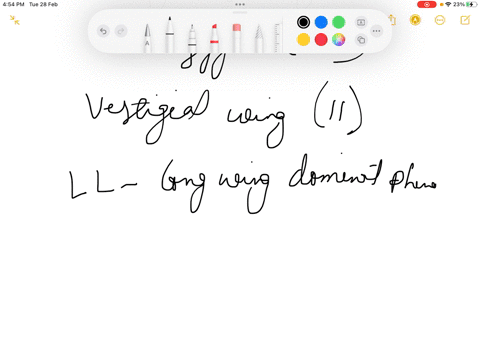 4:54 PM Tue 28 Feb
23%
Vestigial wing (ll)
LL - Long wing dominant pheno